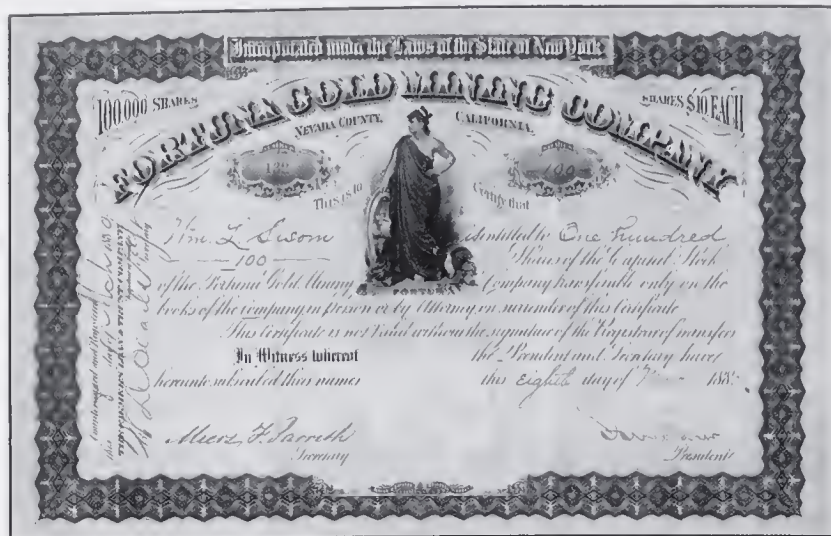 Incorporated under the Laws of the State of New York
100,000 SHARES
SHARES $10 EACH
FORTUNA GOLD MINING COMPANY
NEVADA COUNTY, CALIFORNIA.
132
100
This is to Certify that
Wm. L. is entitled to One hundred
100 Shares of the Capital Stock
of the Fortuna Gold Mining Company transferable only on the
books of the company in person or by Attorney on surrender of this Certificate
This Certificate is not Valid without the signature of the Registrar of transfers
FORTUNA
In Witness whereof the President and Secretary have
hereunto subscribed their names this eighth day of 188
Secretary
President
Countersigned and Registered
this day of